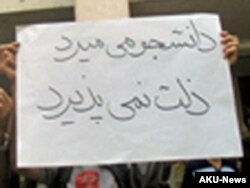 دانشجو می میرد
ذلت نمی پذیرد
AKU-News